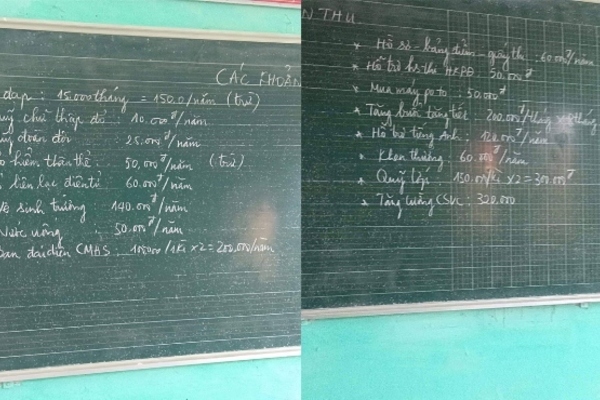 CÁC KHOẢN
đạp : 15.000tháng = 150.0/năm (trừ)
quỹ chữ thập đỏ : 10.000đ/năm
quỹ đoàn đội : 25.000đ/năm
hiểm thân thể : 50.000đ/năm (trừ)
liên lạc điện tử : 60.000đ/năm
Vệ sinh trường : 140.000đ/năm
Nước uống : 50.000đ/năm
Ban đại diện CMHS : 100.000/1kì x 2 = 200.000/năm
THU
* Hồ sơ - bảng điểm - giấy thi : 60.000đ/năm
* Hỗ trợ hs thi : 50.000đ
* Mua máy photo : 50.000đ
* Tăng buổi, tăng tiết : 200.000đ/tháng
* Hỗ trợ tiếng Anh : 120.000đ/năm
* Khen thưởng : 60.000đ/năm
* Quỹ lớp : 150.000/kì x 2 = 300.000đ
* Tăng cường CSVC : 320.000